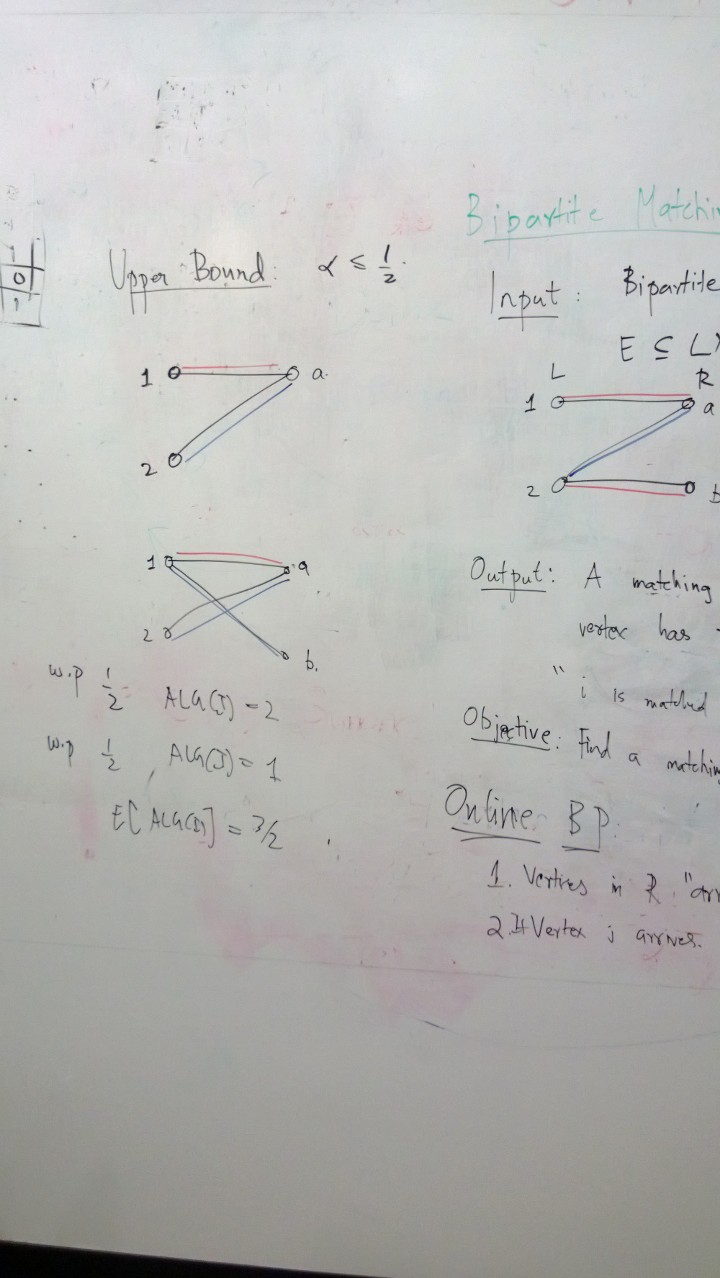 0
1
Upper Bound: α ≤ 1/2.
1 a.
2
1 a
2
b.
w.p 1/2 ALG(I) = 2
w.p 1/2, ALG(I) = 1
E[ALG(I)] = 3/2.
Bipartite
Input: Bipartite
E ⊆ L
L R
1 a
2 b
Output: A matching
vertex has
"i is matched
Objective: Find a matching
Online BP:
1. Vertices in R "arr
2. If Vertex j arrives.